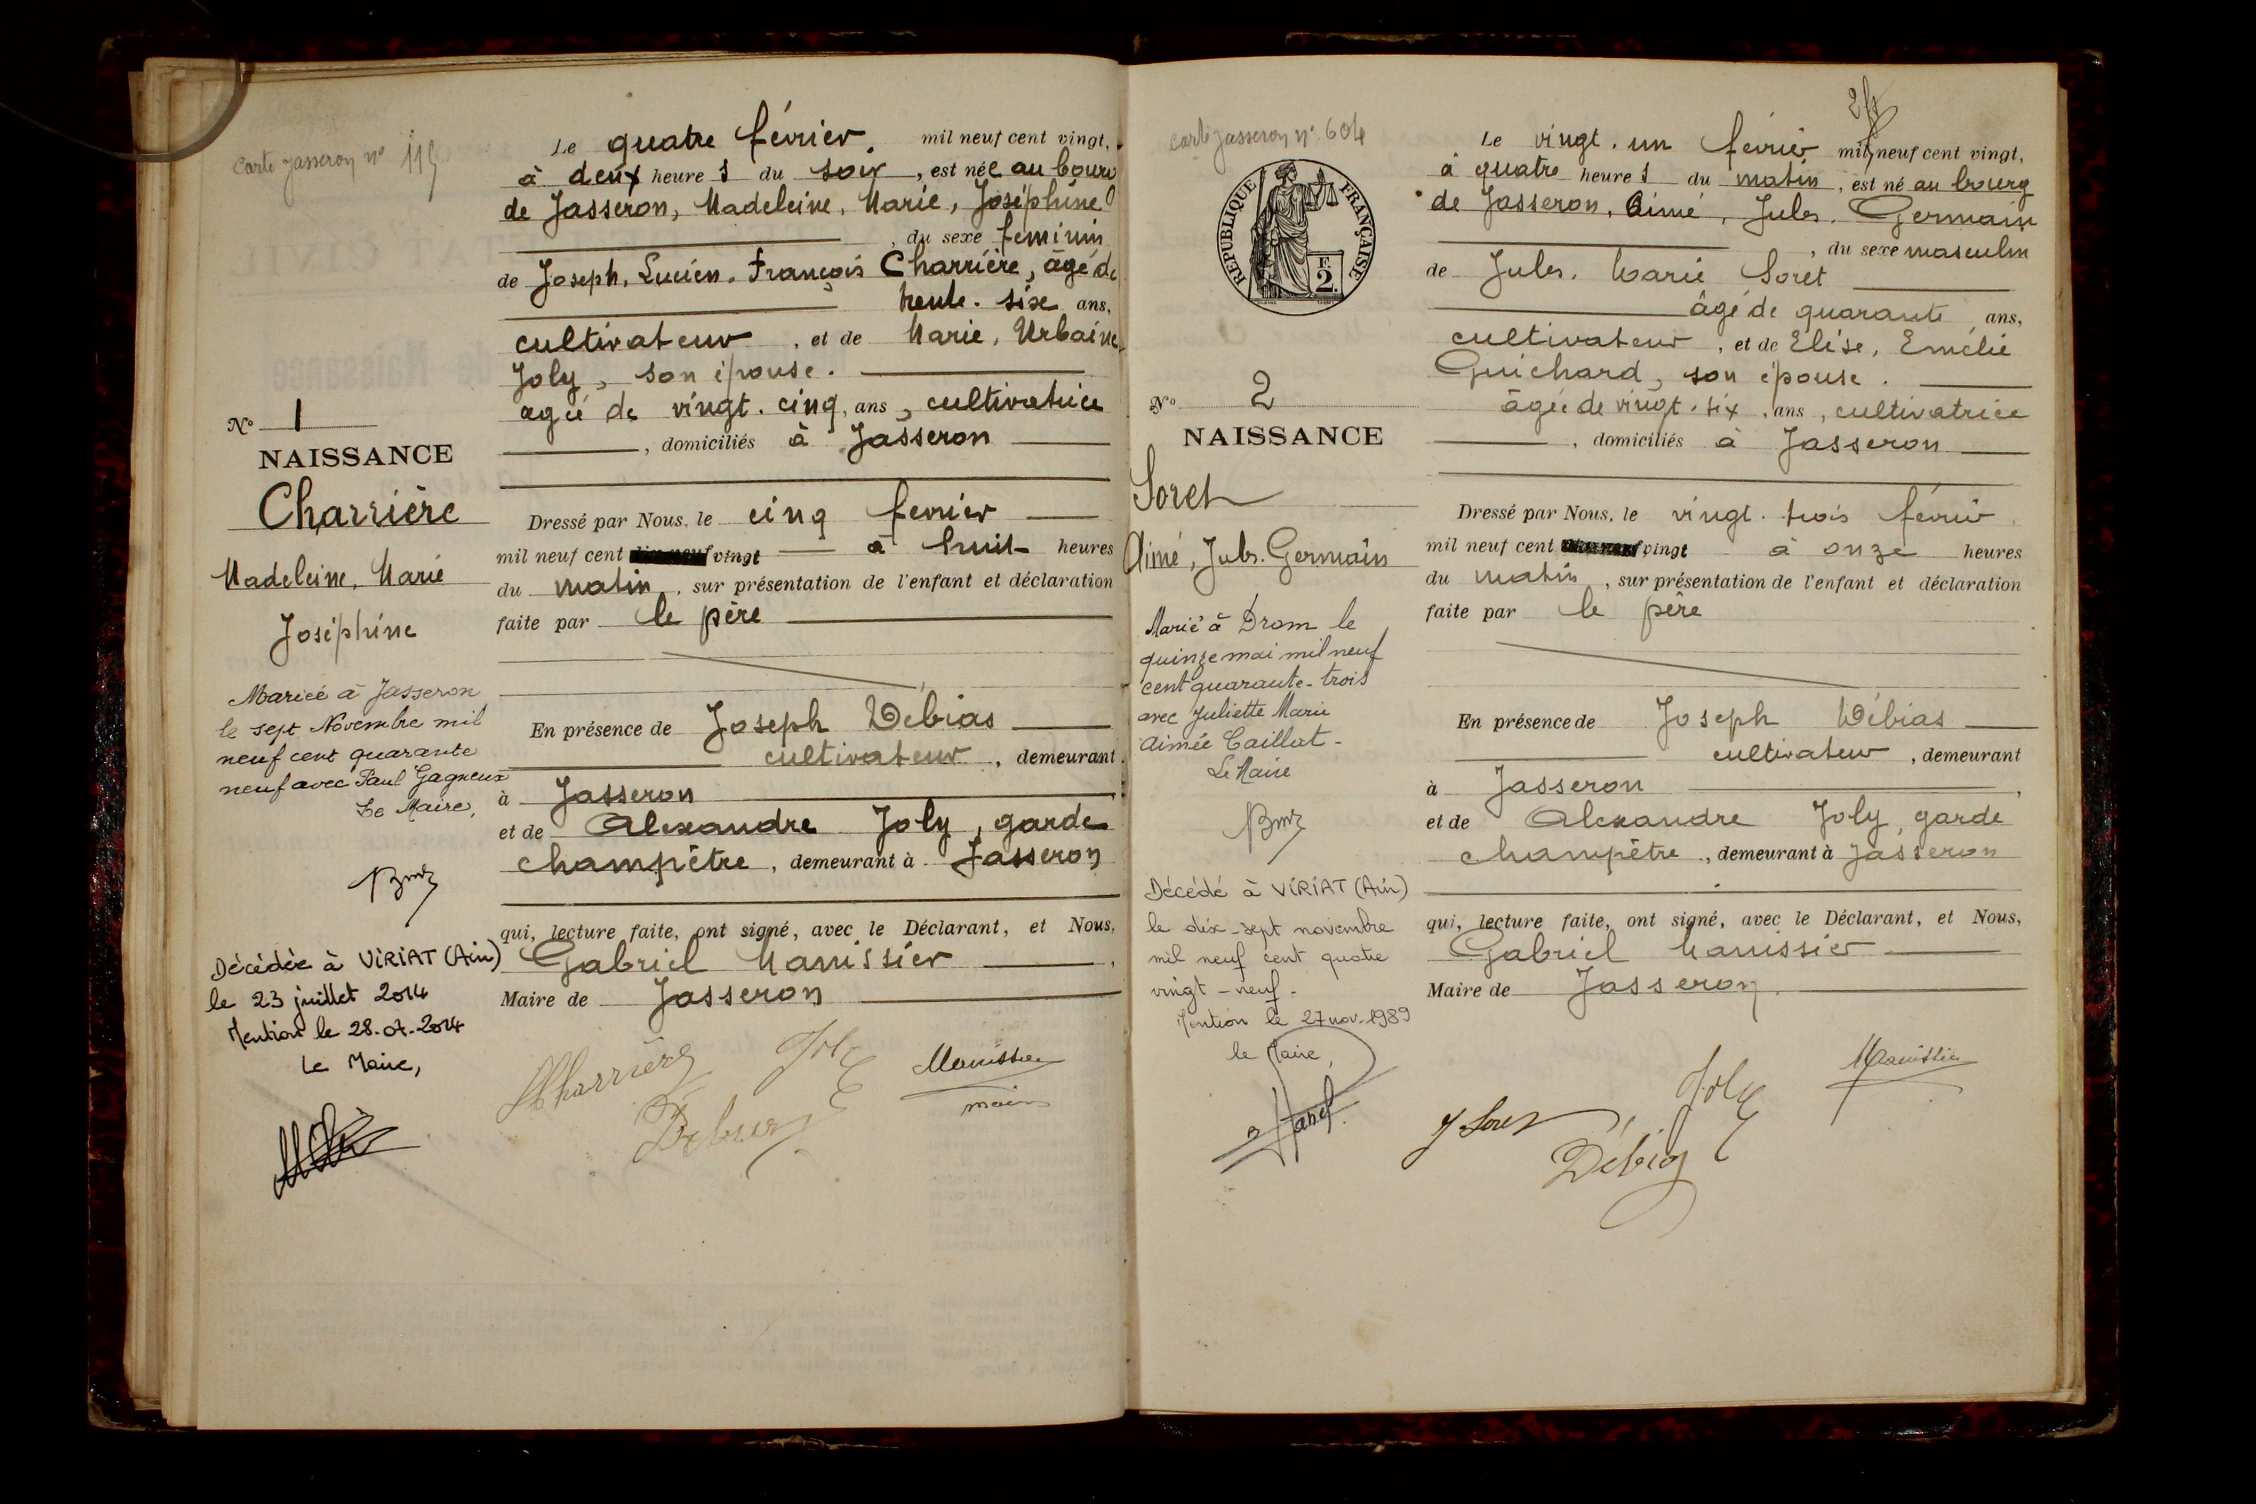 Carte Jasseron n° 115
Le quatre février, mil neuf cent vingt,
à deux heures du soir, est née au bourg
de Jasseron, Madeleine, Marie, Joséphine
, du sexe feminin
de Joseph, Lucien, François Charrière, âgé de
trente-six ans,
cultivateur, et de Marie, Urbaine
Joly, son épouse.
agée de vingt-cinq, ans, cultivatrice
, domiciliés à Jasseron
N° 1
NAISSANCE
Charrière
Madeleine, Marie
Joséphine
Dressé par Nous, le cinq fevrier
mil neuf cent vingt à huit heures
du matin, sur présentation de l'enfant et déclaration
faite par le père
Mariée à Jasseron
le sept Novembre mil
neuf cent quarante
neuf avec Paul Gagneux
Le Maire,
En présence de Joseph Débias
cultivateur, demeurant
à Jasseron
et de Alexandre Joly, garde
champêtre, demeurant à Jasseron
qui, lecture faite, ont signé, avec le Déclarant, et Nous,
Gabriel Manissier,
Maire de Jasseron
Décédée à VIRIAT (Ain)
le 23 juillet 2014
Mention le 28.07.2014
Le Maire,
Charrière
Joly
Manissier
maire
Carte Jasseron n° 604
RÉPUBLIQUE FRANÇAISE
F.
2.
Le vingt-un février mil neuf cent vingt,
à quatre heures du matin, est né au bourg
de Jasseron, Aimé, Jules, Germain
, du sexe masculin
de Jules, Marie Soret
âgé de quarante ans,
cultivateur, et de Elise, Emélie
Guichard, son épouse.
âgée de vingt-six, ans, cultivatrice
, domiciliés à Jasseron
N° 2
NAISSANCE
Soret
Aimé, Jules, Germain
Dressé par Nous, le vingt-trois février
mil neuf cent vingt à onze heures
du matin, sur présentation de l'enfant et déclaration
faite par le père
Marié à Drom le
quinze mai mil neuf
cent quarante-trois
avec Juliette Marie
Aimée Caillat-
Le Maire
En présence de Joseph Débias
cultivateur, demeurant
à Jasseron,
et de Alexandre Joly, garde
champêtre, demeurant à Jasseron
qui, lecture faite, ont signé, avec le Déclarant, et Nous,
Gabriel Manissier
Maire de Jasseron.
Décédé à VIRIAT (Ain)
le dix-sept novembre
mil neuf cent quatre
vingt-neuf.
Mention le 27 nov. 1989
le Maire,
J Soret
Joly
Manissier